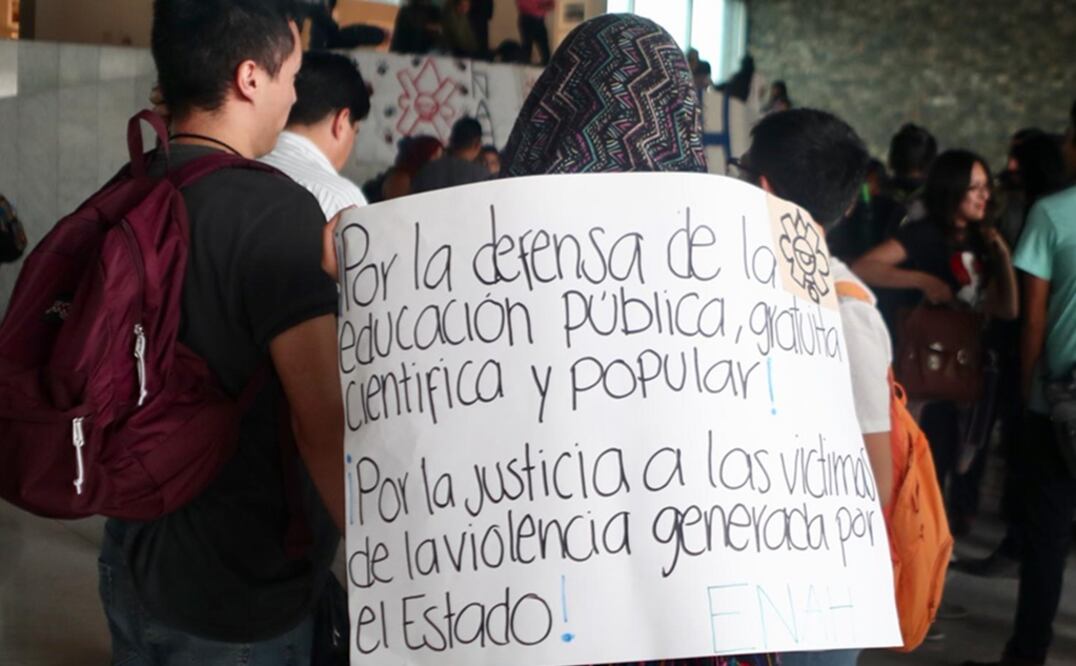 ¡Por la defensa de la
educación pública, gratuita
científica y popular!
¡Por la justicia a las víctimas
de la violencia generada por
el Estado!
ENAH